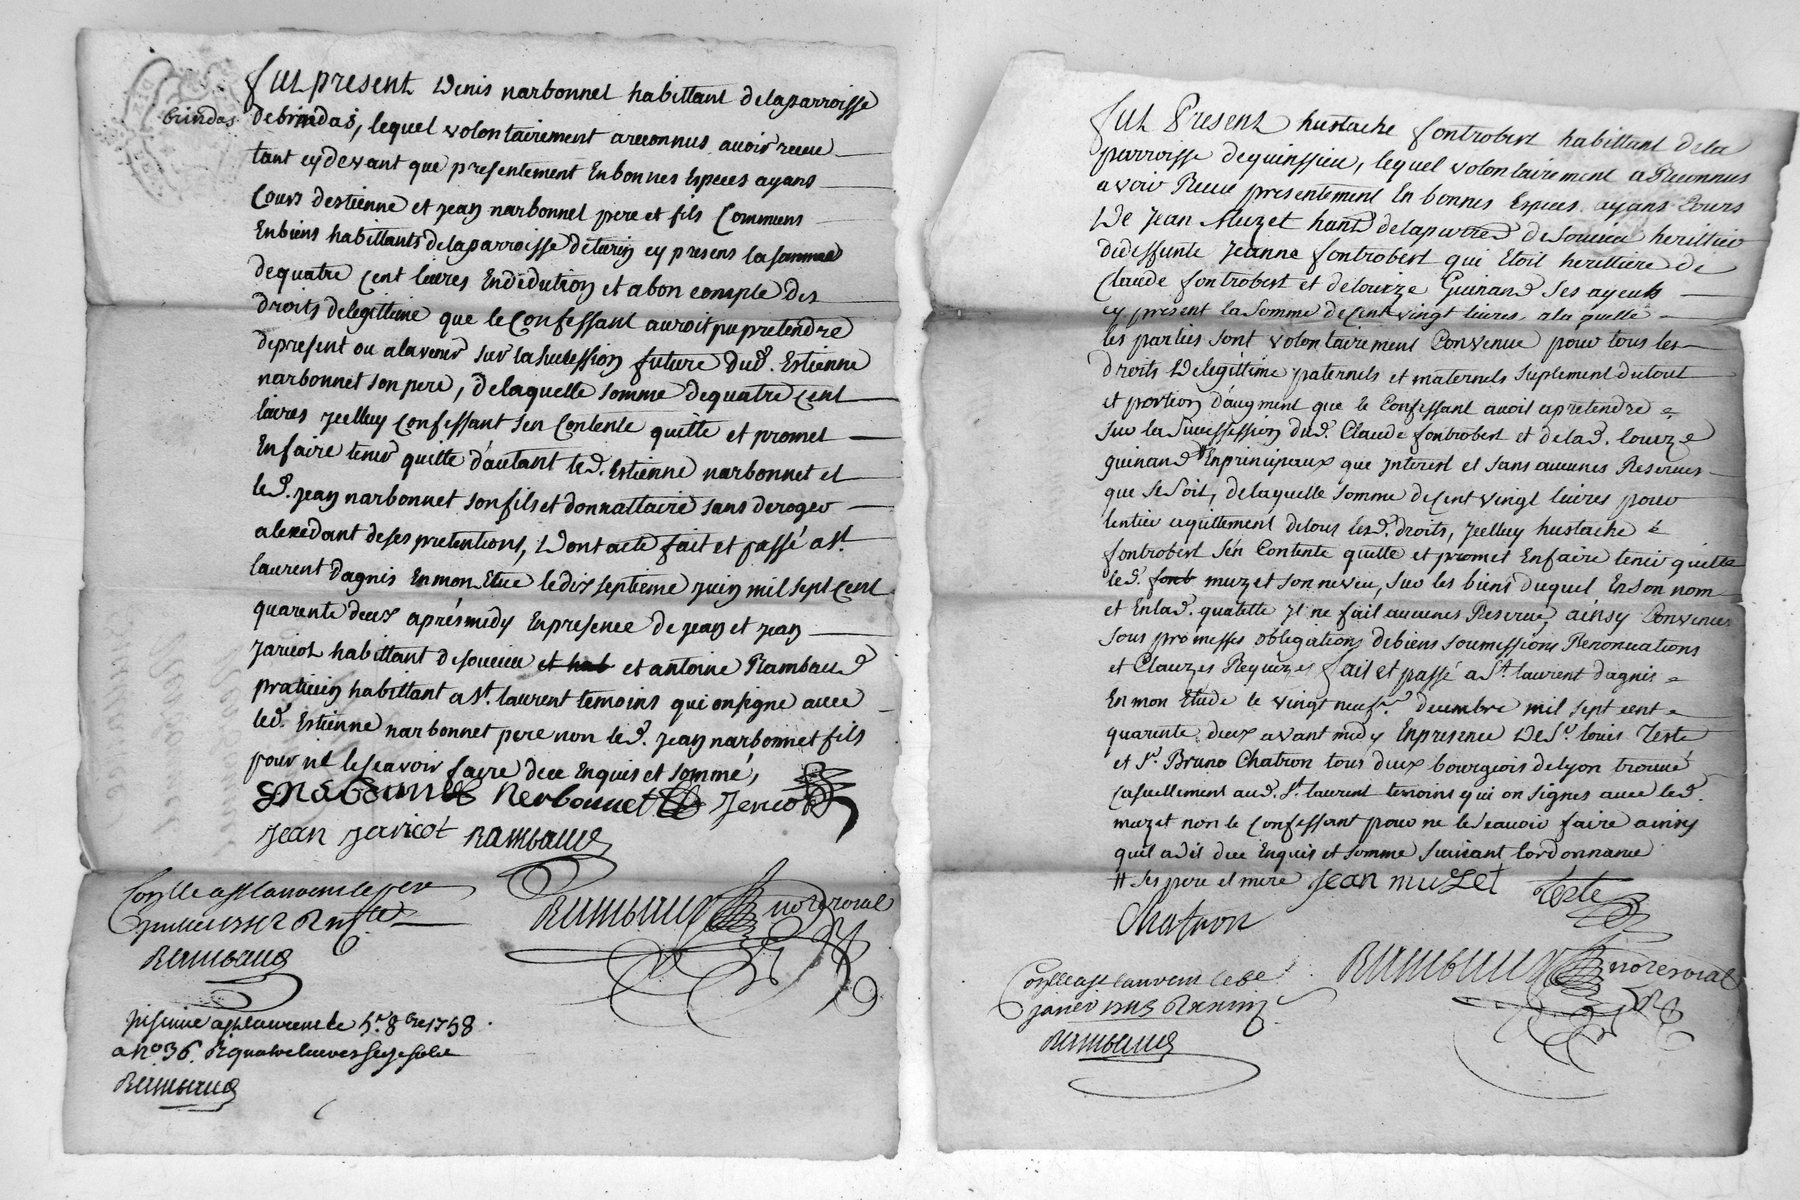 brindas
fut present Denis narbonnet habittant delaparroisse
debrindas, lequel volontairement areconnus avoir receu
tant cydevant que presentement Enbonnes Especes ayans
Cours destienne et jean narbonnet pere et fils Communs
Enbiens habittants delaparroisse de cy presens lasomme
dequatre Cent livres Endedution et abon comple des
droits delegittime que leConfessant auroit pu pretendre
depresent ou alavenir sur lasucession future dud. Estienne
narbonnet son pere, delaquelle somme dequatre Cent
livres jcelluy Confessant sen Contente quitte et promet
Enfaire tenir quitte dautant led. Estienne narbonnet et
led. jean narbonnet son fils et donnattaire sans deroger
alexedant deses pretentions, Dont acte fait et passé a st.
laurent dagnis Enmon Etue ledix septieme juin mil sept Cent
quarente deux aprésmidy Enpresence de jean et jean
jaricot habittant desoucieu et hab et antoine Rambaud
praticien habittant a st. laurent temoins qui onsigne avec
led. Estienne narbonnet pere non led. jean narbonnet fils
pour ne lescavoir faire dece Enquis et sommé,
Nerbonnet Jerico
jean jaricot Rambaud
Conlle a st laurent le
Rambaud Nore Roial
Rambaud
a st laurent le 5e 8bre 1758
a No 36. R quatre livres seze sols
Rambaud
fut Present hustache fontrobert habittant dela
parroisse dequinssieu, lequel volontairement a Reconnus
avoir Receu presentement En bonnes Especes ayans Cours
De Jean Muzet hant delaparred desoucieu herittier
dedeffunte jeanne fontrobert qui Etoit herittiere de
Claude fontrobert et delouize Guinand ses ayeuls
cy present la somme de Cent vingt livres alaquelle
les parties sont volontairement Convenue pour tous les
droits Delegittime paternels et maternels suplement dutout
et portion d'augment que le Confessant avoit apretendre
sur la Succession dud. Claude fontrobert et delad. louize
guinand Enprincipaux que jnterest et sans aucunes Reserves
que se soit, delaquelle somme de Cent vingt livres pour
lentier aquittement detous lesd. droits, jcelluy hustache
fontrobert s'en Contente quitte et promet Enfaire tenir quitte
led. fonb muzet son neveu, sur les biens duquel Enson nom
et Enlad. qualette jl ne fait aucunes Reserve, ainsy Convenus
sous promesses obligations debiens soumissions Renonciations
et Clauzes Requizes fait et passé a St. laurent dagnis
En mon Etude le vingt neufe. decembre mil sept cent
quarente deux avant midy Enpresence De Sr. louis Teste
et Sr. Bruno Chatron tous deux bourgeois delyon trouvé
Casuellement aud. St. laurent temoins qui on signes avec led.
muzet non le Confessant pour ne lescavoir faire ainsy
quil a dit dece Enquis et somme suivant lordonnance
# ses pere et mere Jean muzet Teste
Chatron
Conlle a st laurent le
Rambaud Nore Roial
janvier 1743
Rambaud